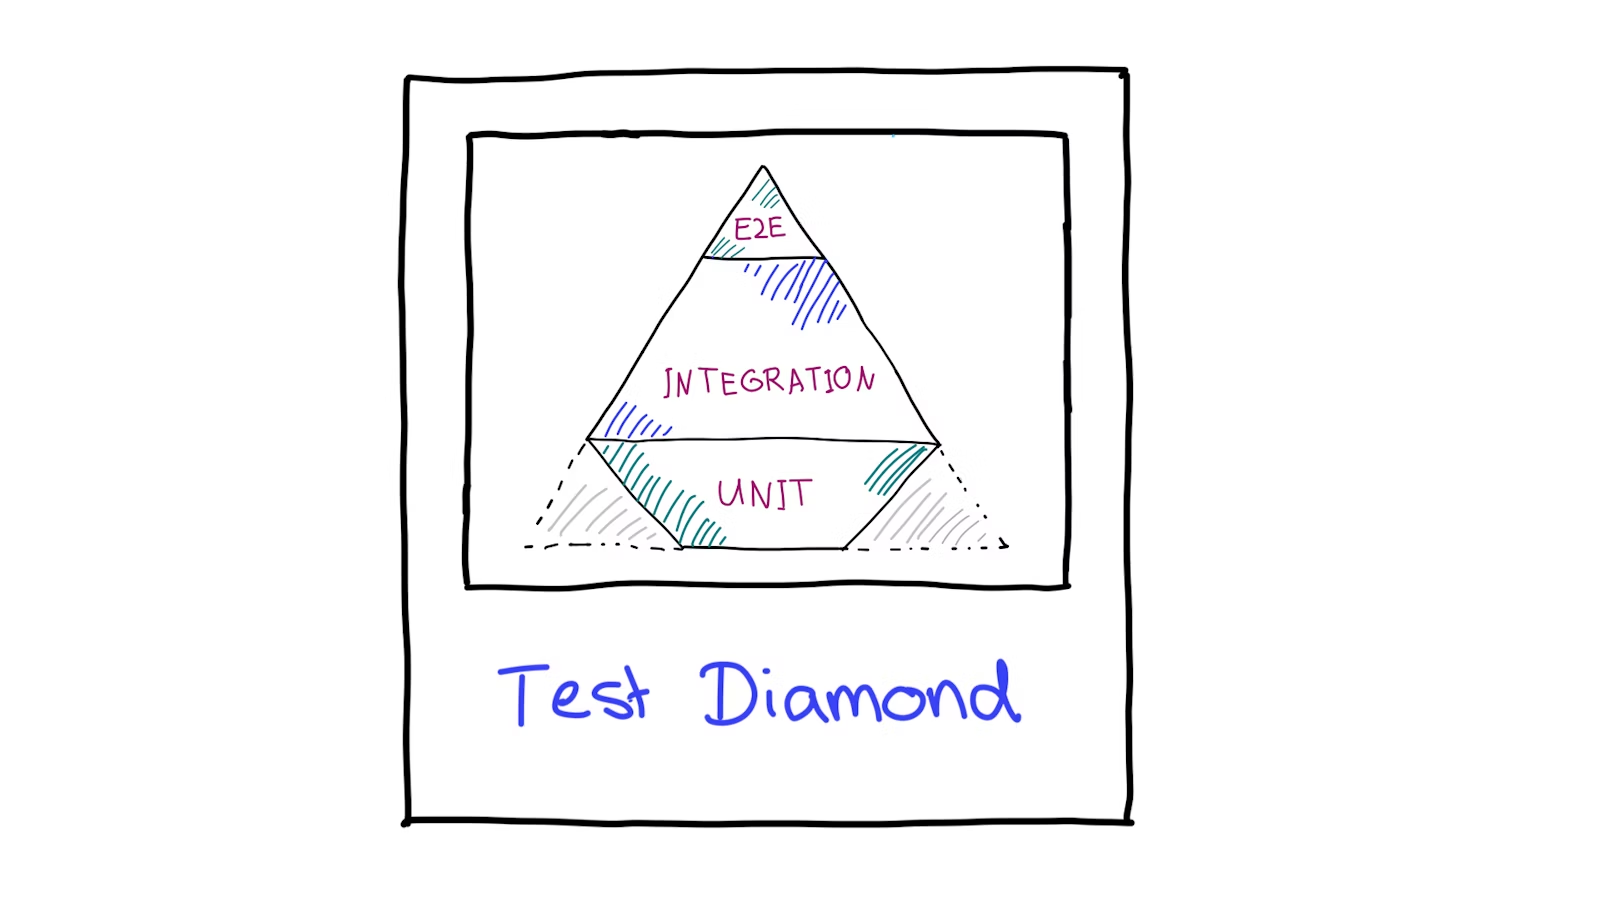 E2E
INTEGRATION
UNIT
Test Diamond